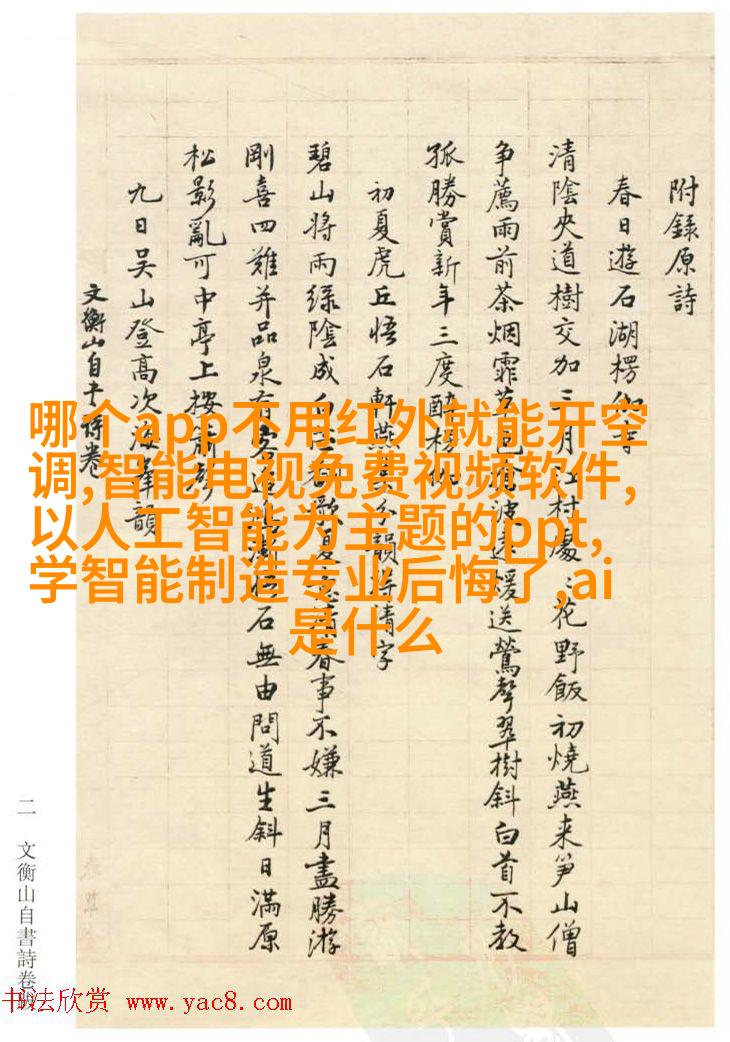 附錄原詩
春日遊石湖楞伽寺
清陰夾道樹交加三月江村處〻花野飯初燒燕来笋山僧
争薦雨前茶烟霏波遠煖送鶯聲翠樹斜白首不教
孤勝賞新年三度醉楞伽
初夏虎丘悟石軒燕集分韻得情字
碧山將雨綠陰成歌夏春事不嫌三月盡勝游
剛喜四難并品泉有客石無由問道生斜日滿原
松影亂可中亭上按
九日吴山登高次韻
文衡山自书诗卷
二 文衡山自書詩卷跋
哪个app不用红外就能开空
调,智能电视免费视频软件,
以人工智能为主题的ppt,
学智能制造专业后悔了,ai
是什么
书法欣赏 www.yac8.com